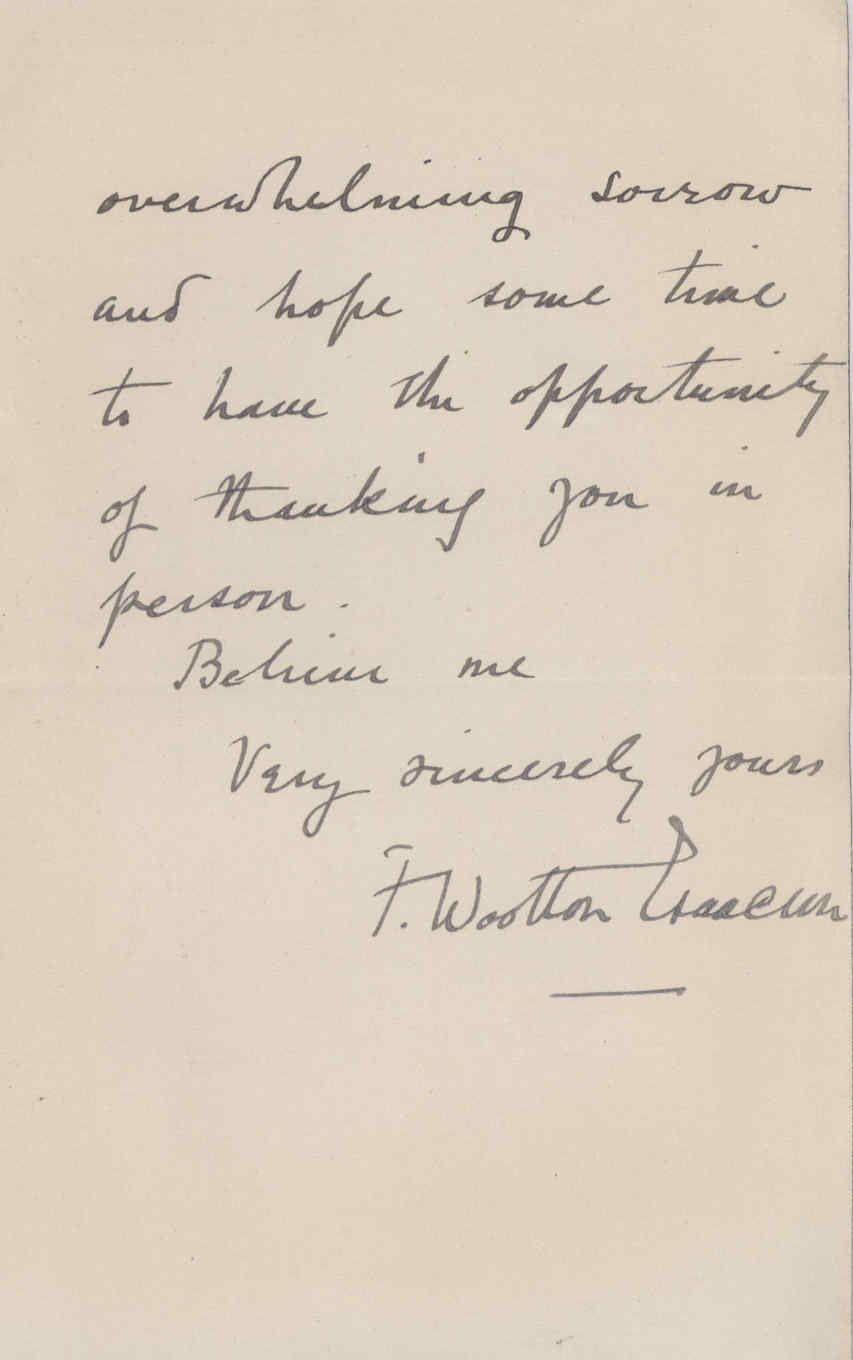 overwhelming sorrow
and hope some time
to have the opportunity
of thanking you in
person.
Believe me
Very sincerely yours
F. Wootton Isaacson